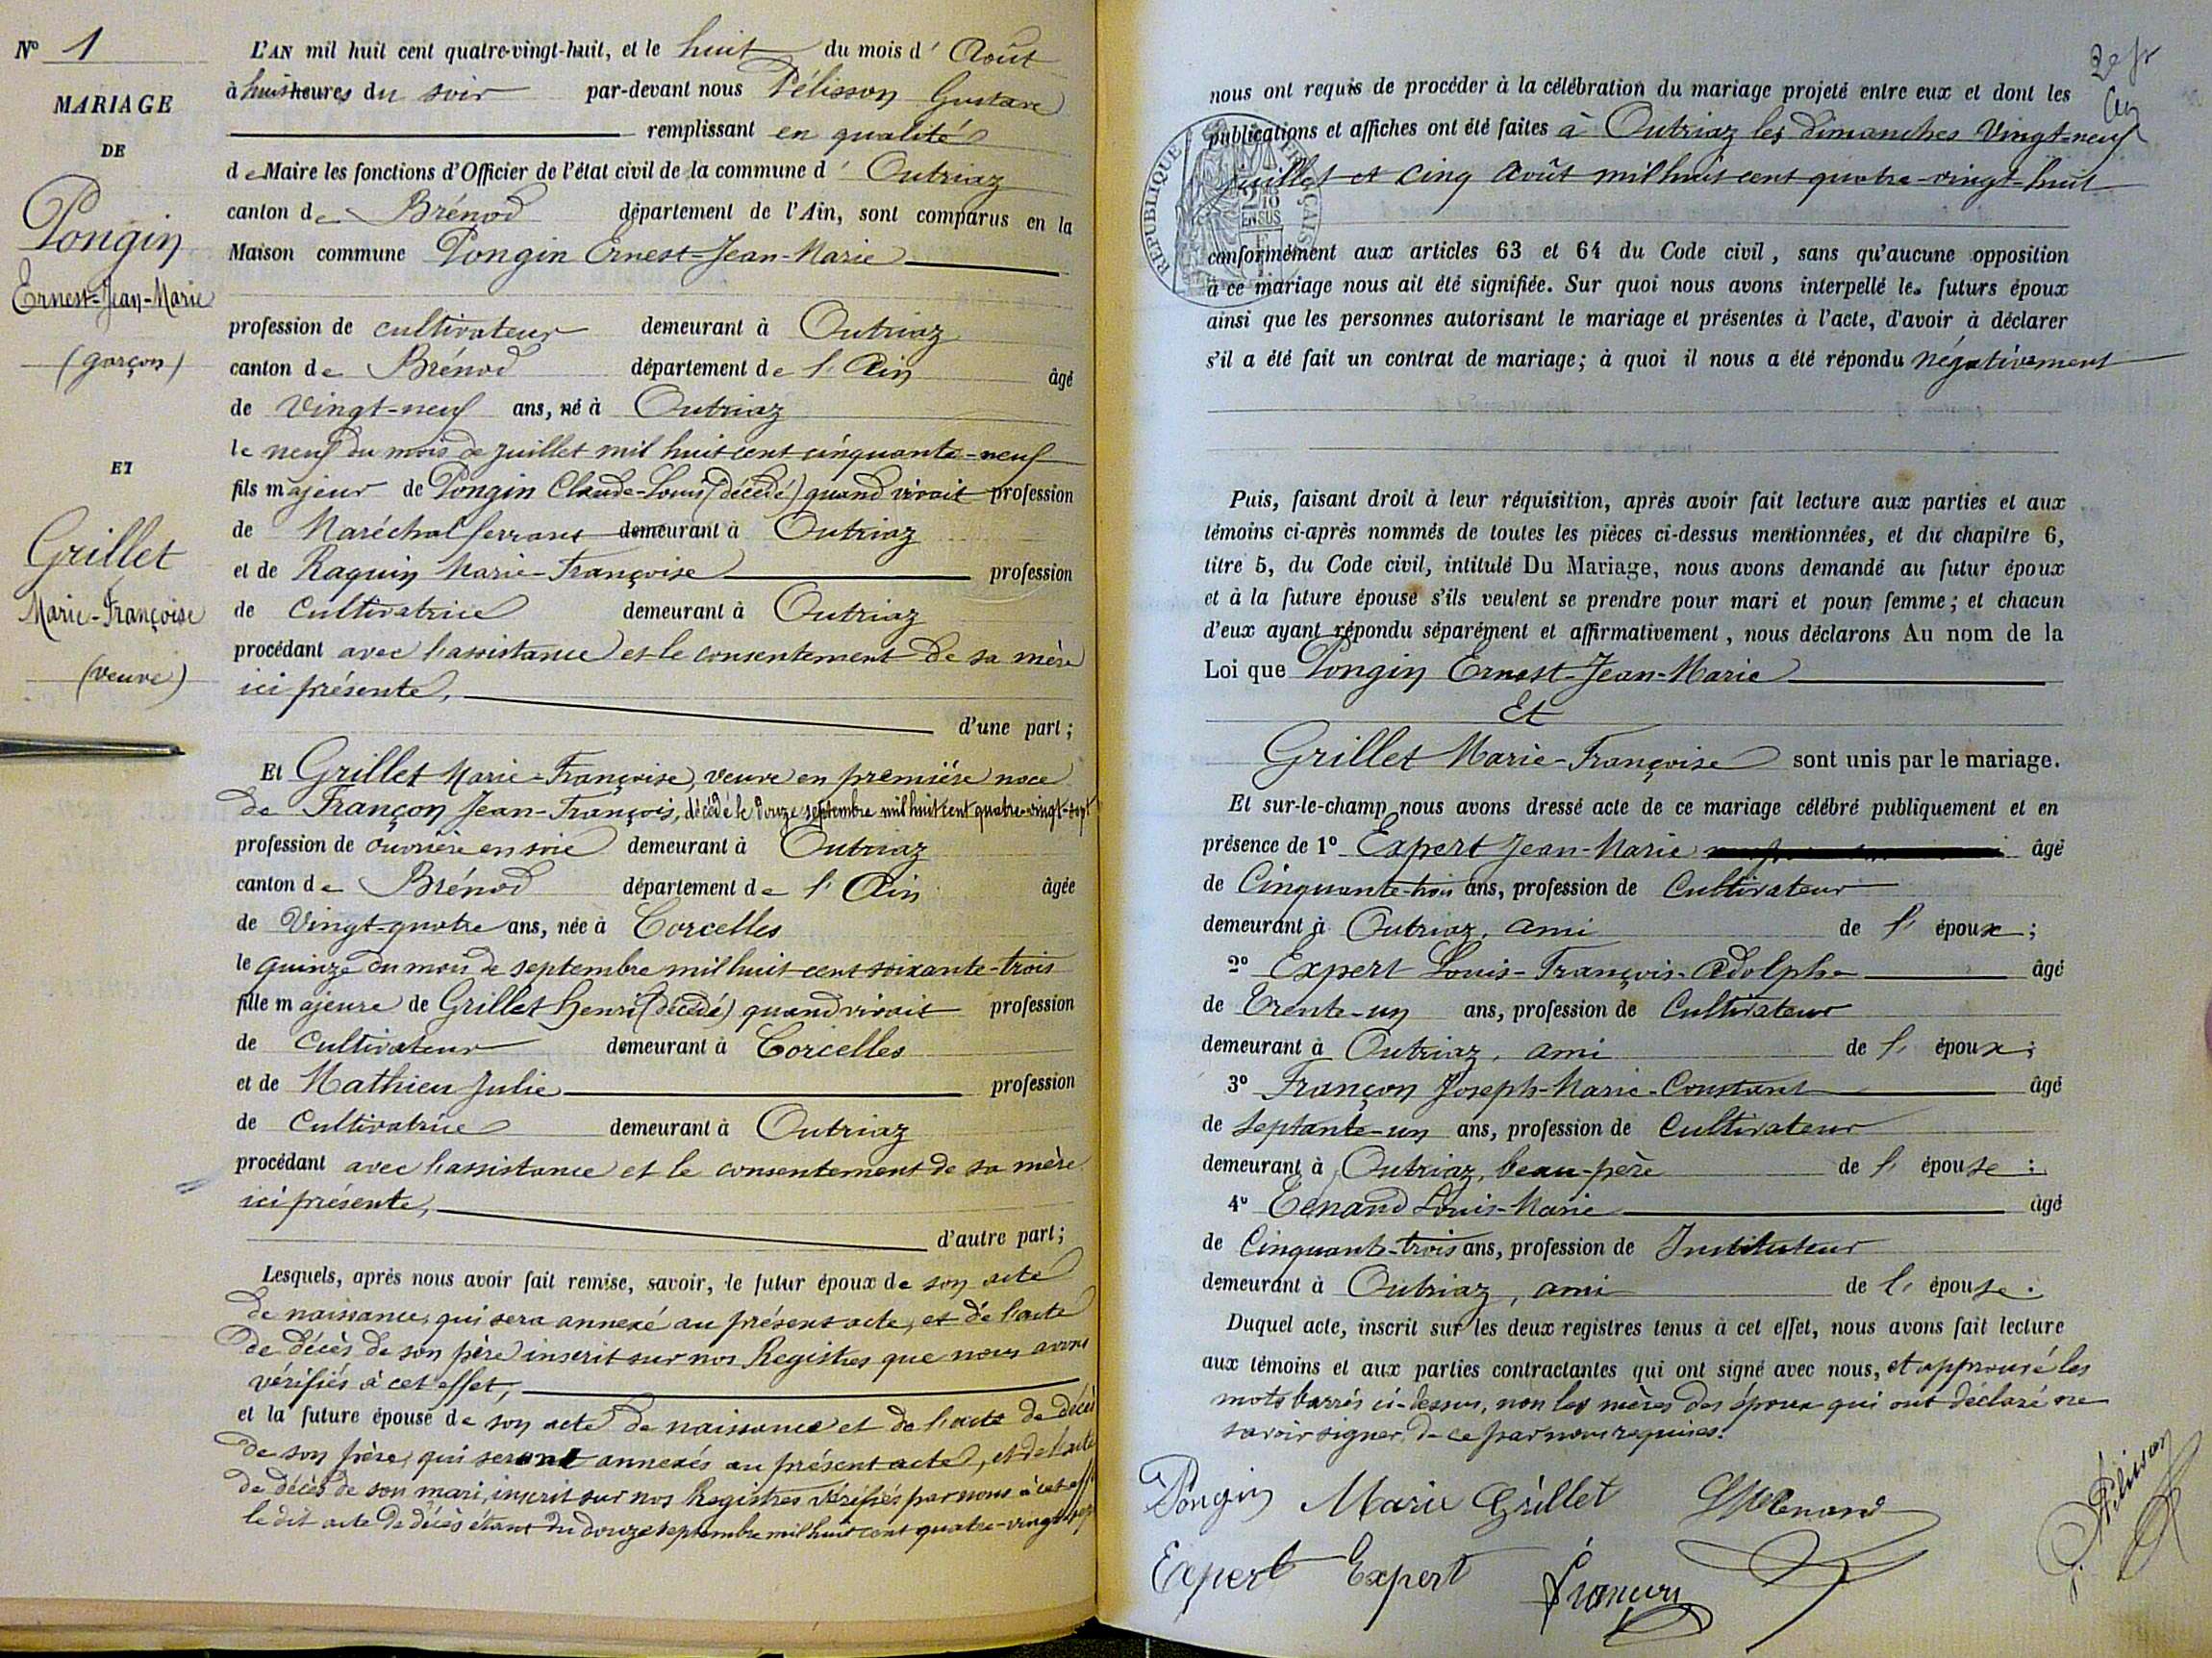 N° 1
MARIAGE
DE
Pongin
Ernest-Jean-Marie
(garçon)
ET
Grillet
Marie-Françoise
(veuve)
L'AN mil huit cent quatre-vingt-huit, et le huit du mois d' Août
à huit heures du soir par-devant nous Pélisson Gustave
remplissant en qualité
de Maire les fonctions d'Officier de l'état civil de la commune d' Outriaz
canton de Brénod département de l'Ain, sont comparus en la
Maison commune Pongin Ernest=Jean-Marie
profession de cultivateur demeurant à Outriaz
canton de Brénod département de l'Ain âgé
de Vingt-neuf ans, né à Outriaz
le neuf du mois de juillet mil huit cent cinquante-neuf
fils majeur de Pongin Claude-Louis (décédé) quand vivait profession
de Maréchal ferrant demeurant à Outriaz
et de Raquin Marie-Françoise profession
de Cultivatrice demeurant à Outriaz
procédant avec l'assistance et le consentement de sa mère
ici présente,
d'une part;
Et Grillet Marie-Françoise, veuve en première noce
de Françon Jean-François, décédé le douze septembre mil huit cent quatre-vingt-sept
profession de ouvrière en soie demeurant à Outriaz
canton de Brénod département de l'Ain âgée
de Vingt-quatre ans, née à Corcelles
le quinze du mois de septembre mil huit cent soixante-trois
fille majeure de Grillet Henri (décédé) quand vivait profession
de Cultivateur demeurant à Corcelles
et de Mathieu Julie profession
de Cultivatrice demeurant à Outriaz
procédant avec l'assistance et le consentement de sa mère
ici présente,
d'autre part;
Lesquels, après nous avoir fait remise, savoir, le futur époux de son acte
de naissance, qui sera annexé au présent acte, et de l'acte
de décès de son père inscrit sur nos Registres que nous avons
vérifiés à cet effet,
et la future épouse de son acte de naissance et de l'acte de décès
de son père, qui seront annexés au présent acte, et de l'acte
de décès de son mari, inscrit sur nos Registres vérifiés par nous à cet eff
le dit acte de décès étant du douze septembre mil huit cent quatre-vingt-sept
2e fr
nous ont requis de procéder à la célébration du mariage projeté entre eux et dont les
publications et affiches ont été faites à Outriaz les dimanches Vingt-neuf
Juillet et cinq Août mil huit cent quatre-vingt-huit
REPUBLIQUE FRANÇAISE
2/10 EN SUS
conformément aux articles 63 et 64 du Code civil, sans qu'aucune opposition
à ce mariage nous ait été signifiée. Sur quoi nous avons interpellé les futurs époux
ainsi que les personnes autorisant le mariage et présentes à l'acte, d'avoir à déclarer
s'il a été fait un contrat de mariage; à quoi il nous a été répondu négativement
Puis, faisant droit à leur réquisition, après avoir fait lecture aux parties et aux
témoins ci-après nommés de toutes les pièces ci-dessus mentionnées, et du chapitre 6,
titre 5, du Code civil, intitulé Du Mariage, nous avons demandé au futur époux
et à la future épouse s'ils veulent se prendre pour mari et pour femme; et chacun
d'eux ayant répondu séparément et affirmativement, nous déclarons Au nom de la
Loi que Pongin Ernest-Jean-Marie
Et
Grillet Marie-Françoise sont unis par le mariage.
Et sur-le-champ nous avons dressé acte de ce mariage célébré publiquement et en
présence de 1° Expert Jean-Marie âgé
de Cinquante-trois ans, profession de Cultivateur
demeurant à Outriaz, ami de l'époux;
2° Expert Louis-François-Adolphe âgé
de Trente-un ans, profession de Cultivateur
demeurant à Outriaz, ami de l'époux;
3° Françon Joseph-Marie-Constant âgé
de Septante-un ans, profession de Cultivateur
demeurant à Outriaz, beau-père de l'épouse;
4° Tenand Louis-Marie âgé
de Cinquante-trois ans, profession de Instituteur
demeurant à Outriaz, ami de l'épouse.
Duquel acte, inscrit sur les deux registres tenus à cet effet, nous avons fait lecture
aux témoins et aux parties contractantes qui ont signé avec nous, et approuvé les
mots barrés ci-dessus, non les mères des époux qui ont déclaré ne
savoir signer, de ce par nous requises.
Pongin Marie Grillet Tenand
G. Pélisson
Expert Expert Françon